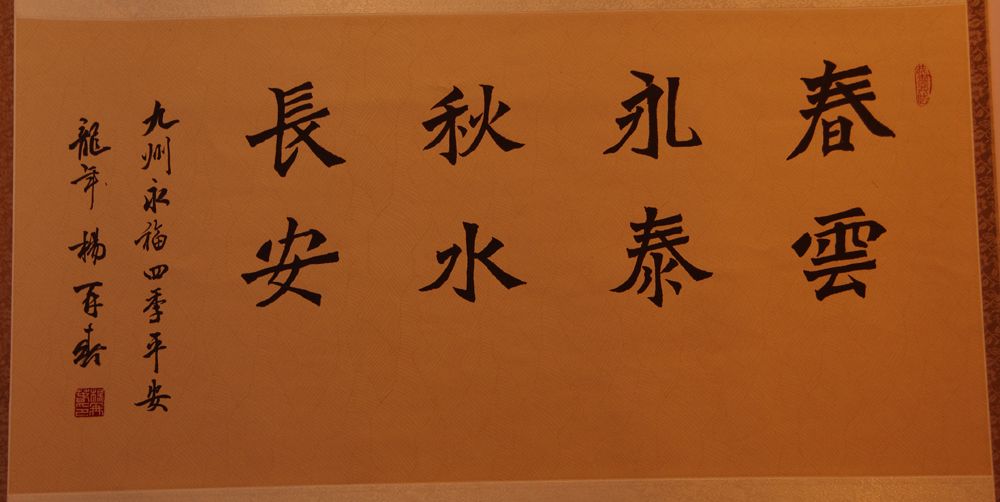 春雲
永泰
秋水
長安
九州永福四季平安
龍年 楊再春